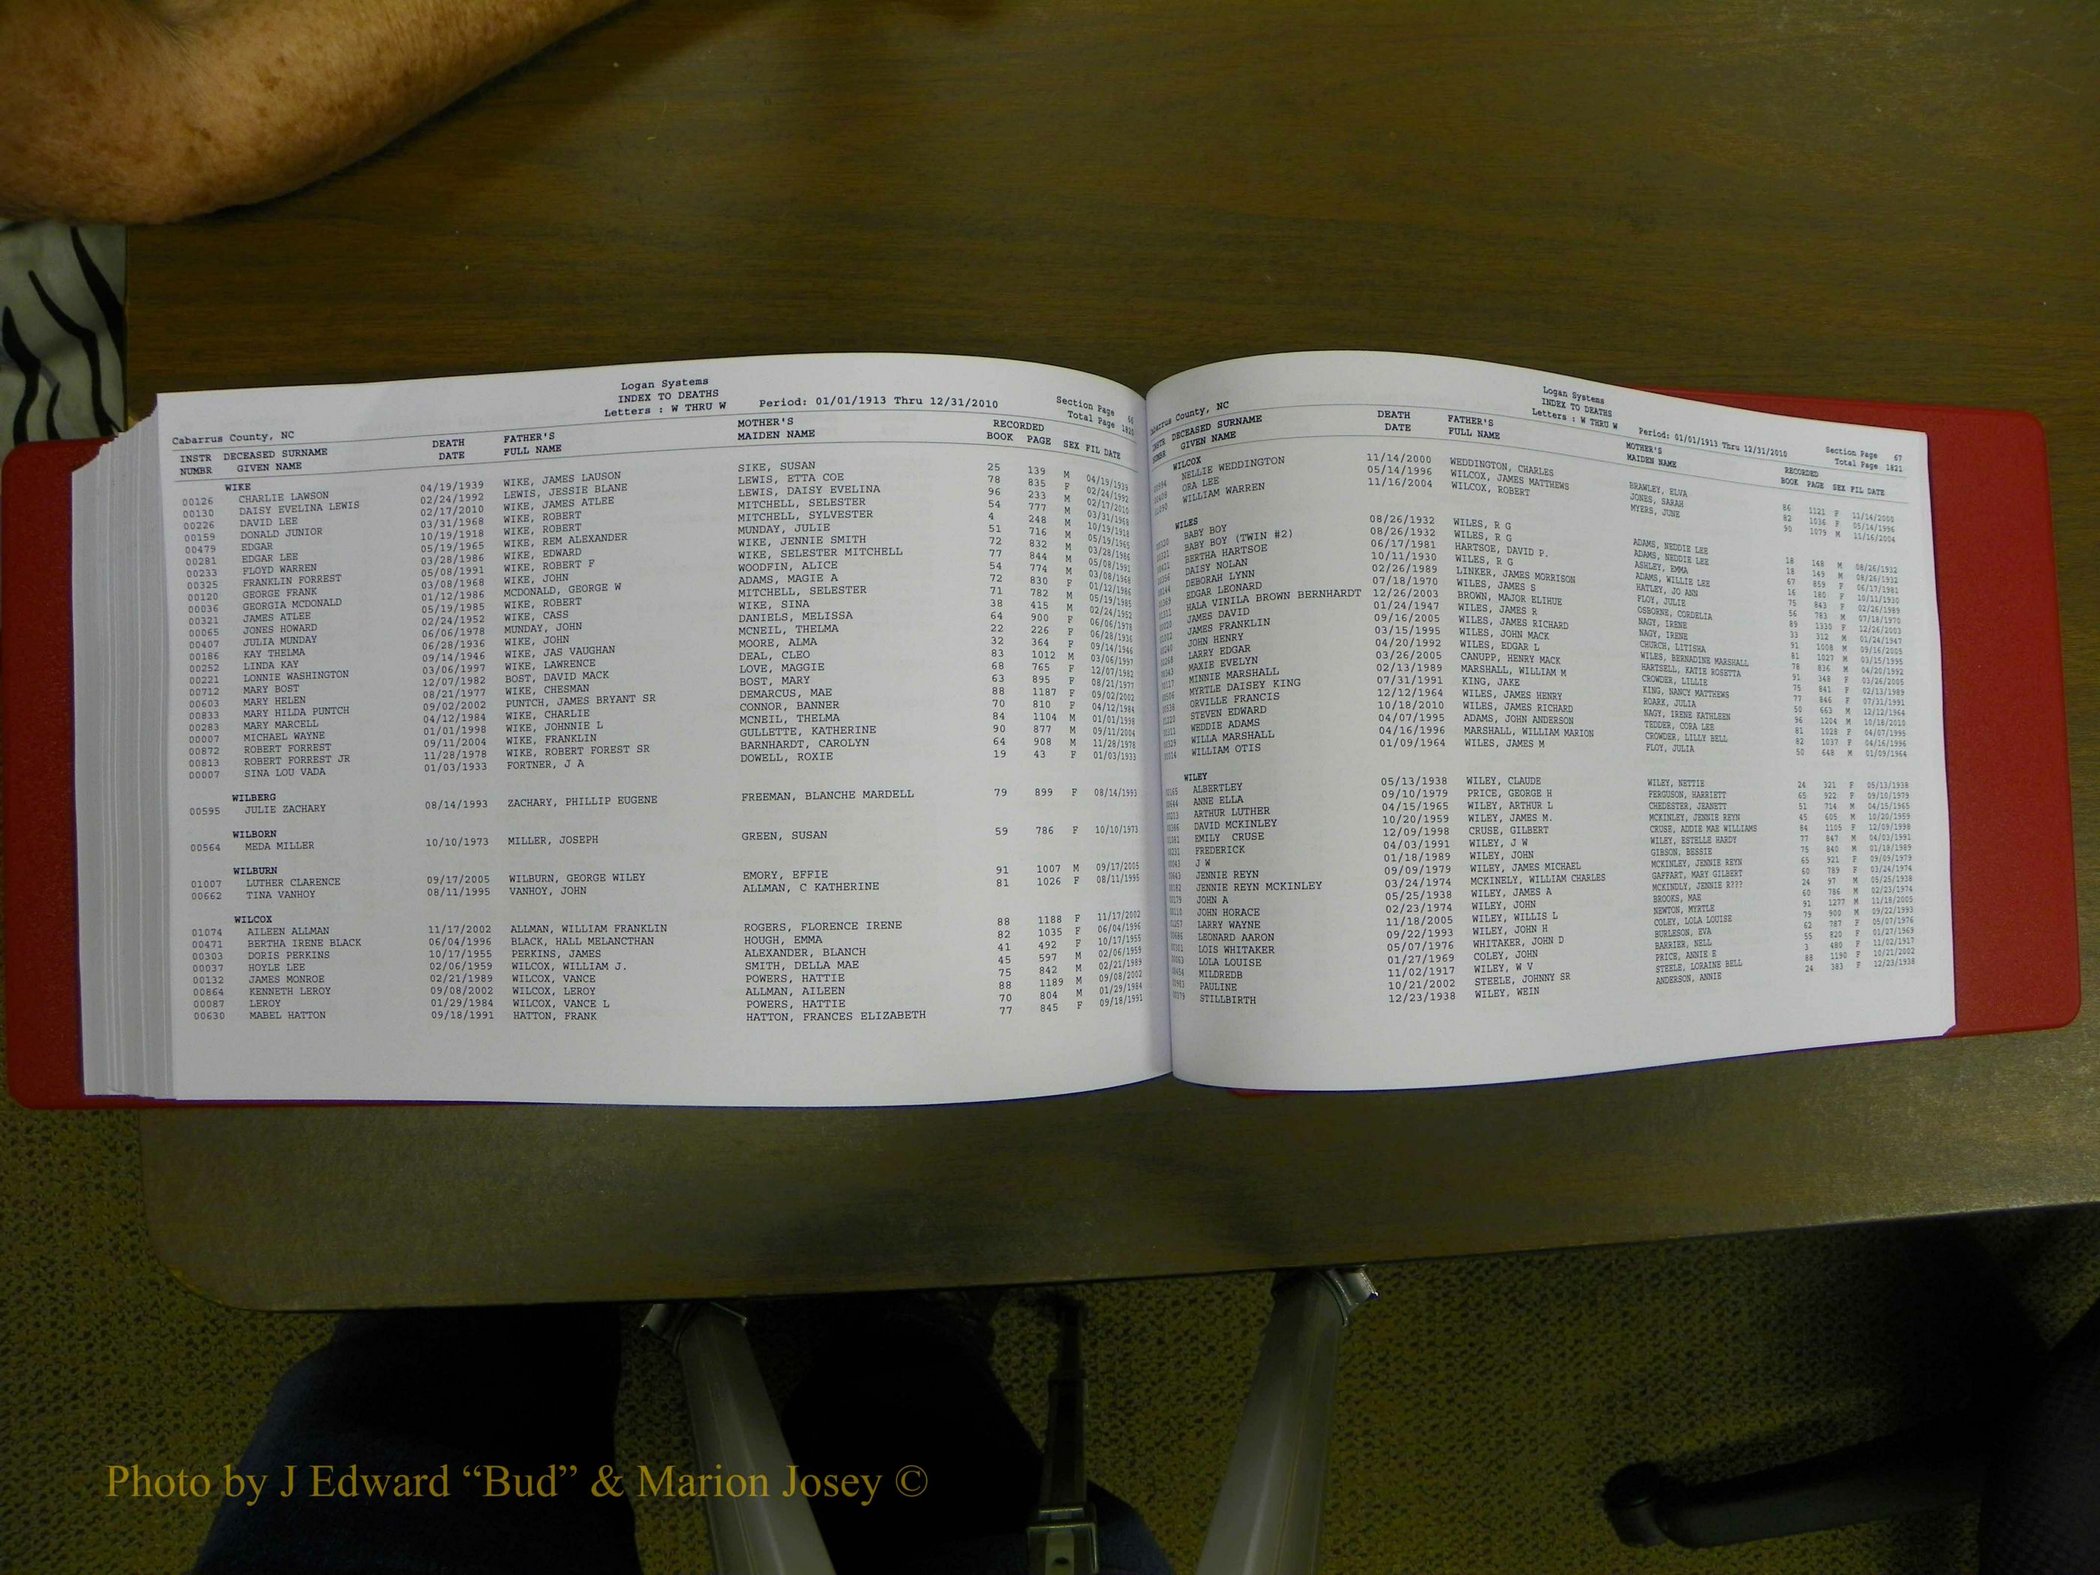 Logan Systems
INDEX TO DEATHS
Letters : W THRU W Period: 01/01/1913 Thru 12/31/2010
Section Page 66
Total Page 1820
Cabarrus County, NC
INSTR DECEASED SURNAME DEATH FATHER'S MOTHER'S RECORDED
NUMBR GIVEN NAME DATE FULL NAME MAIDEN NAME BOOK PAGE SEX FIL DATE
WIKE
00126 CHARLIE LAWSON 04/19/1939 WIKE, JAMES LAUSON SIKE, SUSAN 25 139 M 04/19/1939
00130 DAISY EVELINA LEWIS 02/24/1992 LEWIS, JESSIE BLANE LEWIS, ETTA COE 78 835 F 02/24/1992
00226 DAVID LEE 02/17/2010 WIKE, JAMES ATLEE LEWIS, DAISY EVELINA 96 233 M 02/17/2010
00159 DONALD JUNIOR 03/31/1968 WIKE, ROBERT MITCHELL, SELESTER 54 777 M 03/31/1968
00479 EDGAR 10/19/1918 WIKE, ROBERT MITCHELL, SYLVESTER 4 248 M 10/19/1918
00281 EDGAR LEE 05/19/1965 WIKE, REM ALEXANDER MUNDAY, JULIE 51 716 M 05/19/1965
00233 FLOYD WARREN 03/28/1986 WIKE, EDWARD WIKE, JENNIE SMITH 72 832 M 03/28/1986
00325 FRANKLIN FORREST 05/08/1991 WIKE, ROBERT F WIKE, SELESTER MITCHELL 77 844 M 05/08/1991
00120 GEORGE FRANK 03/08/1968 WIKE, JOHN WOODFIN, ALICE 54 774 M 03/08/1968
00036 GEORGIA MCDONALD 01/12/1986 MCDONALD, GEORGE W ADAMS, MAGIE A 72 830 F 01/12/1986
00321 JAMES ATLEE 05/19/1985 WIKE, ROBERT MITCHELL, SELESTER 71 782 M 05/19/1985
00065 JONES HOWARD 02/24/1952 WIKE, CASS WIKE, SINA 38 415 M 02/24/1952
00407 JULIA MUNDAY 06/06/1978 MUNDAY, JOHN DANIELS, MELISSA 64 900 F 06/06/1978
00186 KAY THELMA 06/28/1936 WIKE, JOHN MCNEIL, THELMA 22 226 F 06/28/1936
00252 LINDA KAY 09/14/1946 WIKE, JAS VAUGHAN MOORE, ALMA 32 364 F 09/14/1946
00221 LONNIE WASHINGTON 03/06/1997 WIKE, LAWRENCE DEAL, CLEO 83 1012 M 03/06/1997
00712 MARY BOST 12/07/1982 BOST, DAVID MACK LOVE, MAGGIE 68 765 F 12/07/1982
00603 MARY HELEN 08/21/1977 WIKE, CHESMAN BOST, MARY 63 895 F 08/21/1977
00833 MARY HILDA PUNTCH 09/02/2002 PUNTCH, JAMES BRYANT SR DEMARCUS, MAE 88 1187 F 09/02/2002
00283 MARY MARCELL 04/12/1984 WIKE, CHARLIE CONNOR, BANNER 70 810 F 04/12/1984
00007 MICHAEL WAYNE 01/01/1998 WIKE, JOHNNIE L MCNEIL, THELMA 84 1104 M 01/01/1998
00872 ROBERT FORREST 09/11/2004 WIKE, FRANKLIN GULLETTE, KATHERINE 90 877 M 09/11/2004
00813 ROBERT FORREST JR 11/28/1978 WIKE, ROBERT FOREST SR BARNHARDT, CAROLYN 64 908 M 11/28/1978
00007 SINA LOU VADA 01/03/1933 FORTNER, J A DOWELL, ROXIE 19 43 F 01/03/1933
WILBERG
00595 JULIE ZACHARY 08/14/1993 ZACHARY, PHILLIP EUGENE FREEMAN, BLANCHE MARDELL 79 899 F 08/14/1993
WILBORN
00564 MEDA MILLER 10/10/1973 MILLER, JOSEPH GREEN, SUSAN 59 786 F 10/10/1973
WILBURN
01007 LUTHER CLARENCE 09/17/2005 WILBURN, GEORGE WILEY EMORY, EFFIE 91 1007 M 09/17/2005
00662 TINA VANHOY 08/11/1995 VANHOY, JOHN ALLMAN, C KATHERINE 81 1026 F 08/11/1995
WILCOX
01074 AILEEN ALLMAN 11/17/2002 ALLMAN, WILLIAM FRANKLIN ROGERS, FLORENCE IRENE 88 1188 F 11/17/2002
00471 BERTHA IRENE BLACK 06/04/1996 BLACK, HALL MELANCTHAN HOUGH, EMMA 82 1035 F 06/04/1996
00303 DORIS PERKINS 10/17/1955 PERKINS, JAMES ALEXANDER, BLANCH 41 492 F 10/17/1955
00037 HOYLE LEE 02/06/1959 WILCOX, WILLIAM J. SMITH, DELLA MAE 45 597 M 02/06/1959
00132 JAMES MONROE 02/21/1989 WILCOX, VANCE POWERS, HATTIE 75 842 M 02/21/1989
00864 KENNETH LEROY 09/08/2002 WILCOX, LEROY ALLMAN, AILEEN 88 1189 M 09/08/2002
00087 LEROY 01/29/1984 WILCOX, VANCE L POWERS, HATTIE 70 804 M 01/29/1984
00630 MABEL HATTON 09/18/1991 HATTON, FRANK HATTON, FRANCES ELIZABETH 77 845 F 09/18/1991
Logan Systems
INDEX TO DEATHS
Letters : W THRU W Period: 01/01/1913 Thru 12/31/2010
Section Page 67
Total Page 1821
Cabarrus County, NC
INSTR DECEASED SURNAME DEATH FATHER'S MOTHER'S RECORDED
GIVEN NAME DATE FULL NAME MAIDEN NAME BOOK PAGE SEX FIL DATE
WILCOX
NELLIE WEDDINGTON 11/14/2000 WEDDINGTON, CHARLES BRAWLEY, ELVA 86 1121 F 11/14/2000
ORA LEE 05/14/1996 WILCOX, JAMES MATTHEWS JONES, SARAH 82 1036 F 05/14/1996
WILLIAM WARREN 11/16/2004 WILCOX, ROBERT MYERS, JUNE 90 1079 M 11/16/2004
WILES
BABY BOY 08/26/1932 WILES, R G ADAMS, NEDDIE LEE 18 148 M 08/26/1932
BABY BOY (TWIN #2) 08/26/1932 WILES, R G ADAMS, NEDDIE LEE 18 149 M 08/26/1932
BERTHA HARTSOE 06/17/1981 HARTSOE, DAVID P. ASHLEY, EMMA 67 859 F 06/17/1981
DAISY NOLAN 10/11/1930 WILES, R G ADAMS, WILLIE LEE 16 180 F 10/11/1930
DEBORAH LYNN 02/26/1989 LINKER, JAMES MORRISON HATLEY, JO ANN 75 843 F 02/26/1989
EDGAR LEONARD 07/18/1970 WILES, JAMES S FLOY, JULIE 56 783 M 07/18/1970
HALA VINILA BROWN BERNHARDT 12/26/2003 BROWN, MAJOR ELIHUE OSBORNE, CORDELIA 89 1330 F 12/26/2003
JAMES DAVID 01/24/1947 WILES, JAMES R NAGY, IRENE 33 312 M 01/24/1947
JAMES FRANKLIN 09/16/2005 WILES, JAMES RICHARD NAGY, IRENE 91 1008 M 09/16/2005
JOHN HENRY 03/15/1995 WILES, JOHN MACK CHURCH, LITISHA 81 1027 M 03/15/1995
LARRY EDGAR 04/20/1992 WILES, EDGAR L WILES, BERNADINE MARSHALL 78 836 M 04/20/1992
MAXIE EVELYN 03/26/2005 CANUPP, HENRY MACK HARTSELL, KATIE ROSETTA 91 348 F 03/26/2005
MINNIE MARSHALL 02/13/1989 MARSHALL, WILLIAM M CROWDER, LILLIE 75 841 F 02/13/1989
MYRTLE DAISEY KING 07/31/1991 KING, JAKE KING, NANCY MATTHEWS 77 846 F 07/31/1991
ORVILLE FRANCIS 12/12/1964 WILES, JAMES HENRY ROARK, JULIA 50 663 M 12/12/1964
STEVEN EDWARD 10/18/2010 WILES, JAMES RICHARD NAGY, IRENE KATHLEEN 96 1204 M 10/18/2010
WEDDIE ADAMS 04/07/1995 ADAMS, JOHN ANDERSON TEDDER, CORA LEE 81 1028 F 04/07/1995
WILLA MARSHALL 04/16/1996 MARSHALL, WILLIAM MARION CROWDER, LILLY BELL 82 1037 F 04/16/1996
WILLIAM OTIS 01/09/1964 WILES, JAMES M FLOY, JULIA 50 648 M 01/09/1964
WILEY
ALBERTLEY 05/13/1938 WILEY, CLAUDE WILEY, NETTIE 24 321 F 05/13/1938
ANNE ELLA 09/10/1979 PRICE, GEORGE H FERGUSON, HARRIETT 65 922 F 09/10/1979
ARTHUR LUTHER 04/15/1965 WILEY, ARTHUR L CHEDESTER, JEANETT 51 714 M 04/15/1965
DAVID MCKINLEY 10/20/1959 WILEY, JAMES M. MCKINLEY, JENNIE REYN 45 605 M 10/20/1959
EMILY CRUSE 12/09/1998 CRUSE, GILBERT CRUSE, ADDIE MAE WILLIAMS 84 1105 F 12/09/1998
FREDERICK 04/03/1991 WILEY, J W WILEY, ESTELLE HARDY 77 847 M 04/03/1991
J W 01/18/1989 WILEY, JOHN GIBSON, BESSIE 75 840 M 01/18/1989
JENNIE REYN 09/09/1979 WILEY, JAMES MICHAEL MCKINLEY, JENNIE REYN 65 921 F 09/09/1979
JENNIE REYN MCKINLEY 03/24/1974 MCKINELY, WILLIAM CHARLES GAFFART, MARY GILBERT 60 789 F 03/24/1974
JOHN A 05/25/1938 WILEY, JAMES A MCKINDLY, JENNIE R??? 24 97 M 05/25/1938
JOHN HORACE 02/23/1974 WILEY, JOHN BROOKS, MAE 60 786 M 02/23/1974
LARRY WAYNE 11/18/2005 WILEY, WILLIS L NEWTON, MYRTLE 91 1277 M 11/18/2005
LEONARD AARON 09/22/1993 WILEY, JOHN H COLEY, LOLA LOUISE 79 900 M 09/22/1993
LOIS WHITAKER 05/07/1976 WHITAKER, JOHN D BURLESON, EVA 62 787 F 05/07/1976
LOLA LOUISE 01/27/1969 COLEY, JOHN BARRIER, NELL 55 820 F 01/27/1969
MILDREDB 11/02/1917 WILEY, W V PRICE, ANNIE E 3 480 F 11/02/1917
PAULINE 10/21/2002 STEELE, JOHNNY SR STEELE, LORAINE BELL 88 1190 F 10/21/2002
STILLBIRTH 12/23/1938 WILEY, WEIN ANDERSON, ANNIE 24 383 F 12/23/1938
Photo by J Edward “Bud” & Marion Josey ©